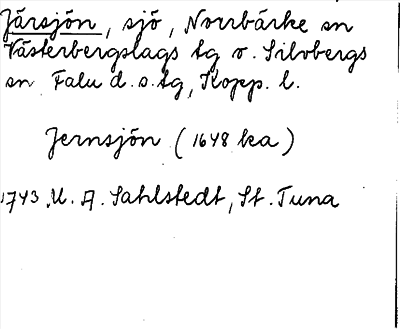 Järsjön, sjö, Norrbärke sn
Västerbergslags tg o. Silvbergs
sn Falu d.s.tg, Kopp. l.
Jernsjön (1648 ka)
1743 M. A. Sahlstedt, St. Tuna